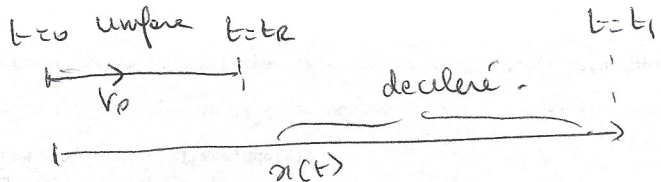 t=0 uniforme t=tR t=t1
V0
décéléré.
x(t)